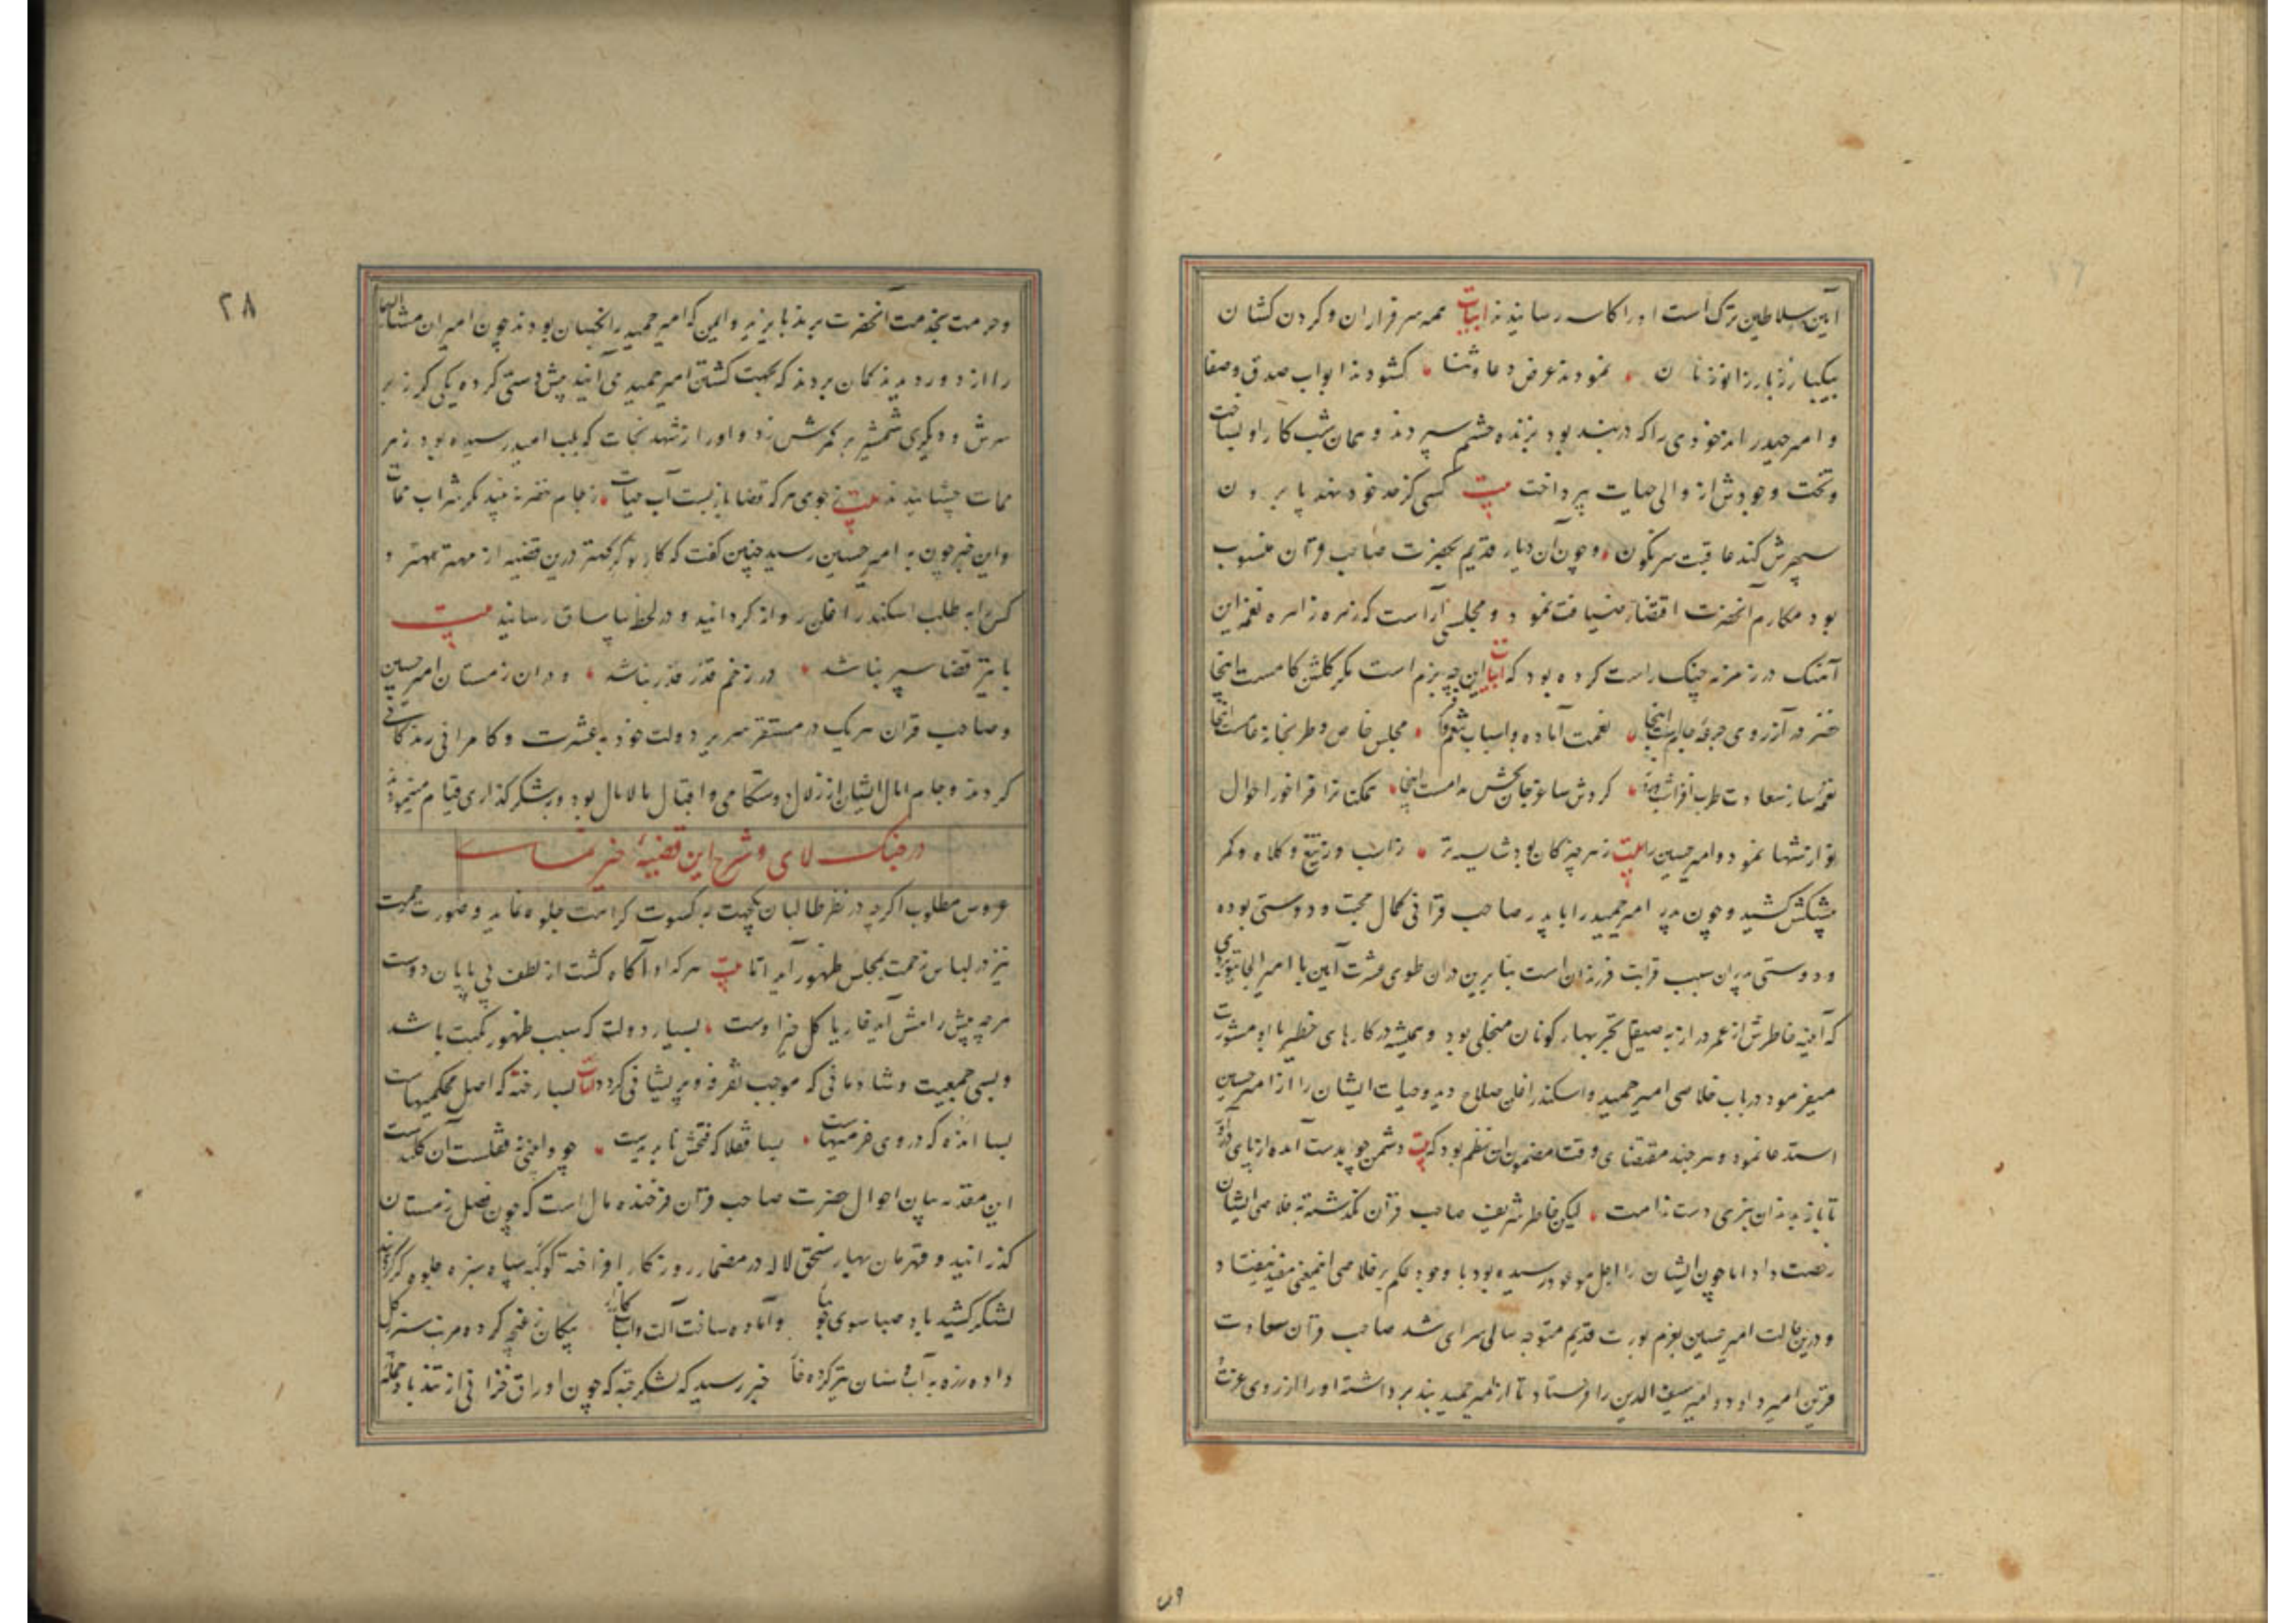 آیین سلاطین ترک است اورا کاسه رسانیدند ابیات همه سرفرازان و کردن کشان
بیکبار زدند نمودند عرض دعا و ثنا کشودند ابواب صدق و صفا
و امیر حیدر اندخودی را که دربند بود بزنده حشم سپردند و همان شب کار او بساخت
و تخت وجودش از والی حیات بپرداخت بیت کسی کز حد خود نهد پا برون
سپهرش کند عاقبت سرنکون وچون آن دیار قدیم بحضرت صاحب قران منسوب
بود مکارم آنحضرت اقتضاء ضیافت نمود و مجلسی آراست که زهره زاهره نغمه این
آهنک در زمزمه چنک راست کرده بود که ابیات این چه بزم است مکر کلشن کامست اینجا
خضر در آرزوی جرعه جامست اینجا نعمت آباده و اسباب تنعم مجلس خاص و طربخانه عامست اینجا
نغمه ساز سعادت طرب افزای کردش ساغر جان بخش مدامست اینجا همکنانرا فراخور احوال
نوازشها نمود و امیر حسین را بیت زهر چیز کان بود شایسته‌تر زاسب و ز تیغ و کلاه و کمر
پیشکش کشید و چون پدر امیر حمید را با پدر صاحب قرانی کمال محبت و دوستی بوده
و دوستی پدران سبب قرابت فرزندان است بنابرین دران طوی عشرت آیین با امیر الجایتو
که آینه خاطرش از عمر دراز به صیقل تجربهاء کوناکون منجلی بود و همیشه در کارهای خطیر با او مشورت
میفرمود درباب خلاصی امیر حمید و اسکندر اغلن صلاح دید و حیات ایشان را از امیر حسین
استدعا نمود و هرچند مقتضای وقت مضمون این نظم بود که بیت دشمن چو بدست آمد از پای
تا باز بدندان نبری دست ندامت لیکن خاطر شریف صاحب قران نکذشته به خلاصی ایشان
رخصت داد اما چون ایشان را اجل موعود رسیده بود با وجود حکم بر خلاصی مفید نیفتاد
و درین حالت امیر حسین بعزم یورت قدیم متوجه سالی سرای شد صاحب قران سعادت
قرین امیر داود و امیر سیف الدین را فرستاد تا از امیر حمید بند برداشته اورا از روی عزت
وں
۲۸
و حرمت بخدمت آنحضرت برند بایزید و ایمن که امیر حمید را نکهبان بودند چون امیران مشارالیهما
را از دور دیدند کمان بردند که بجهت کشتن امیر حمید می آیند پیش دستی کرده یکی کرز بر
سرش و دیکری شمشیر بر کمرش زد و اورا از شهد نجات که بلب امید رسیده بود زهر
ممات چشانیدند بیت ز جوی هرکه قضا باز بست آب حیات ز جام خضر نبیند مکر شراب ممات
و این خبر چون به امیر حسین رسید چنین کفت که کار نوکر کهتر درین قضیه از مهتر بهتر و
کس را به طلب اسکندر اغلن روانه کردانید و در لحظه بیاساق رسانید بیت
با تیر قضا سپر نباشد در زخم قدر حذر نباشد و دران زمستان امیر حسین
و صاحب قران هریک در مستقر سریر دولت خود به عشرت و کامرانی زندکانی
کردند و جام امال ایشان از زلال دوستکامی و اقبال مالامال بود و بشکر کذاری قیام مینمودند
در جنک لای و شرح این قضیه خیر نماست
عروس مطلوب اکرچه در نظر طالبان بکسوت کراهت جلوه نماید و صورت
نیز در لباس زحمت بمجلس ظهور آید اما بیت هر که او آکاه کشت از لطف بی پایان دوست
هرچه پیش رامش آید خار یا کل خیر اوست بسیار دولت که سبب ظهور نکبت باشد
و بسی جمعیت و شادمانی که موجب تفرقه و پریشانی کردد ابیات بسا رخنه که اصل محکمیهاست
بسا انده که دروی خرمیهاست بسا قفلا که فتحش ناپدیدست چو وابینی نه قفلست آن کلیدست
این مقدمه بیان احوال حضرت صاحب قران فرخنده مال است که چون فصل زمستان
کذرانید و قهرمان بهار سنجق لاله در مضمار روزکار افراخته کوکبه سپاه سبزه جلوه کر کردید
لشکر کشید باد صبا سوی و آماده ساخت آلت و اسباب پیکان ز غنچه کرده مرتب سپر کل
داده زره به آب و سنان تیز کرده خار خبر رسید که لشکر جته که چون اوراق خزانی از تندباد حمله